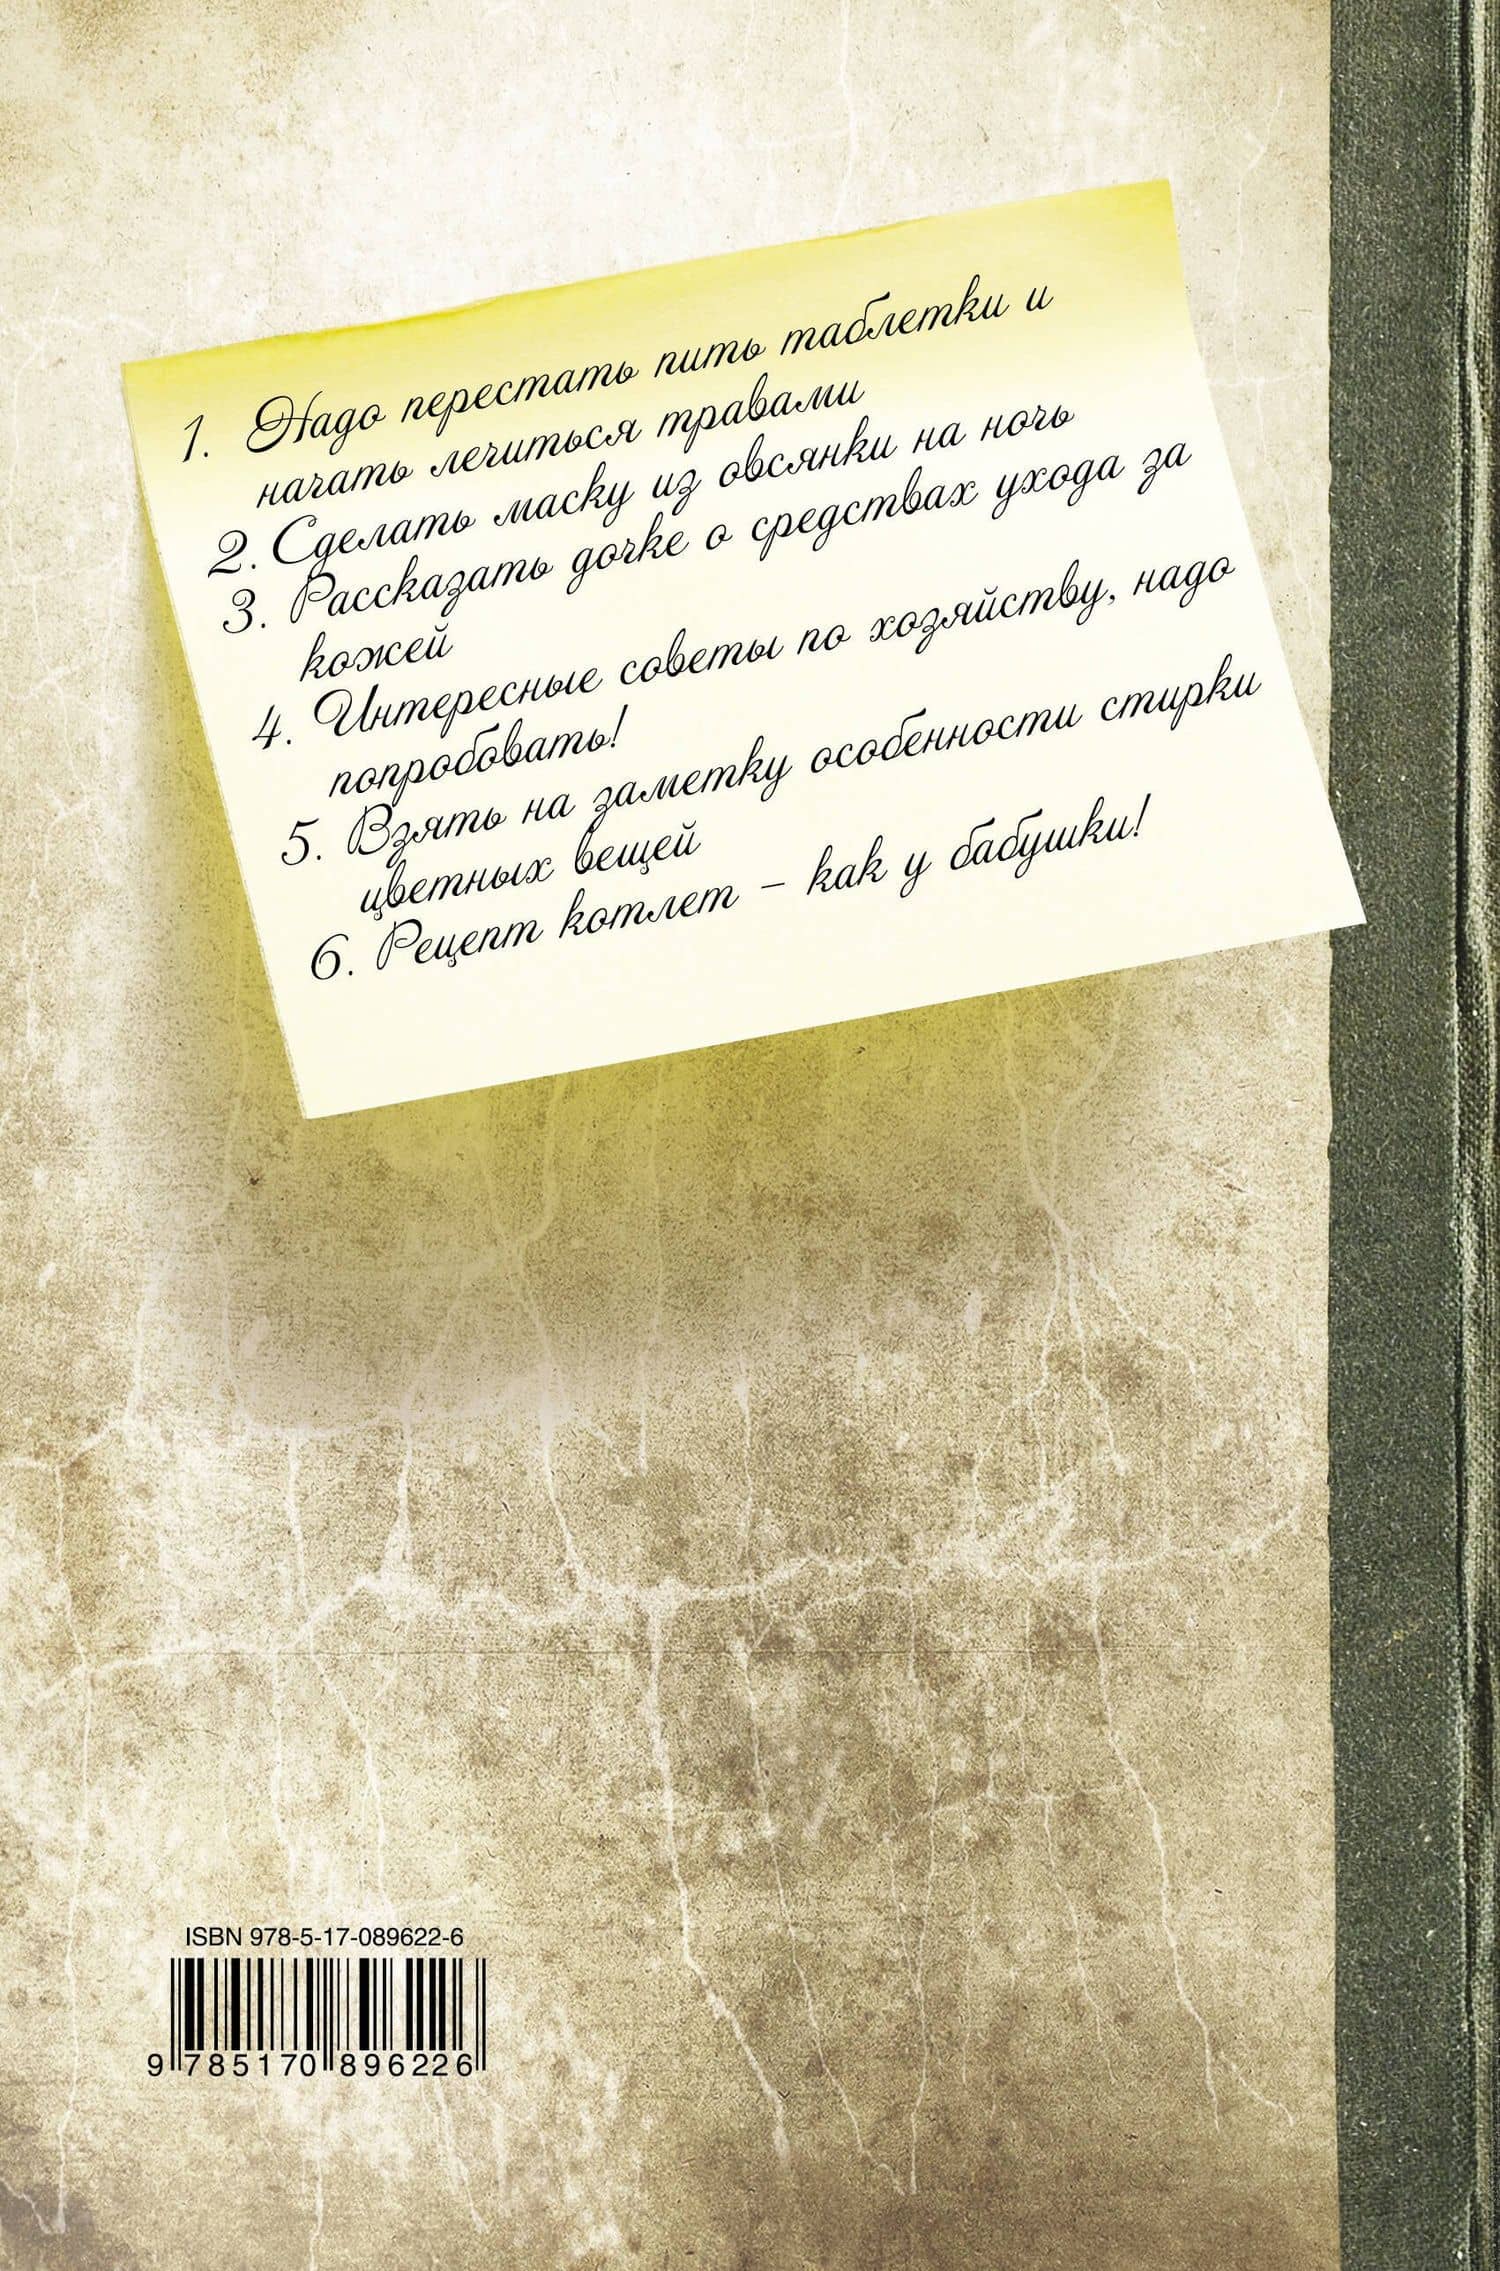 1. Надо перестать пить таблетки и
начать лечиться травами
2. Сделать маску из овсянки на ночь
3. Рассказать дочке о средствах ухода за
кожей
4. Интересные советы по хозяйству, надо
попробовать!
5. Взять на заметку особенности стирки
цветных вещей
6. Рецепт котлет – как у бабушки!
ISBN 978-5-17-089622-6
9 785170 896226